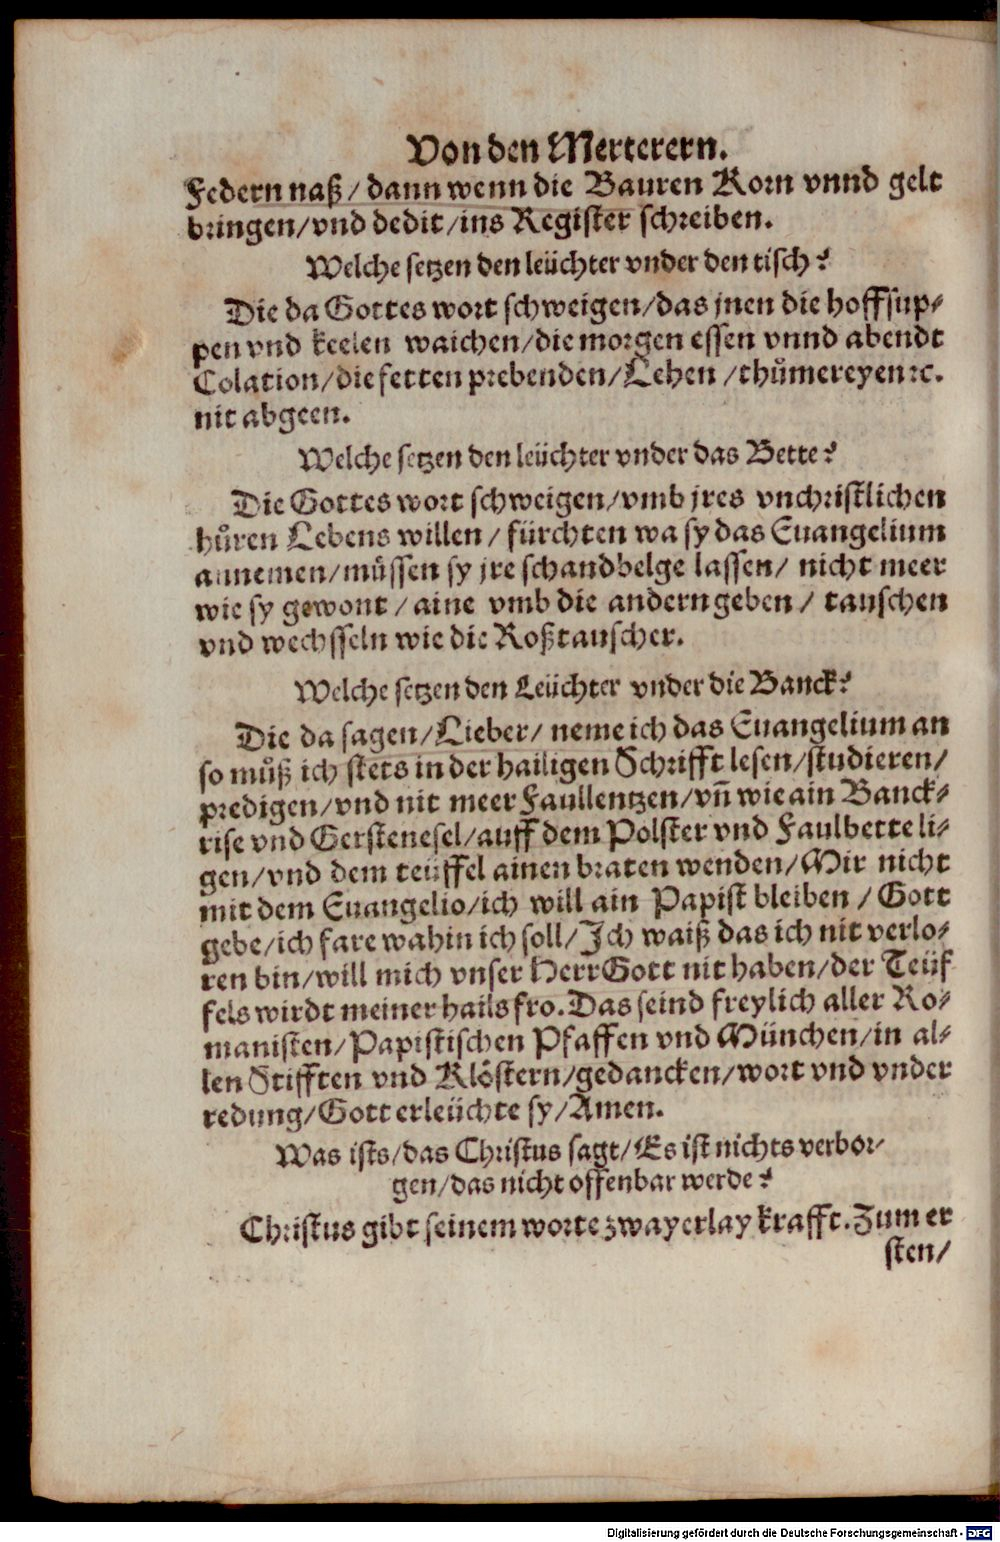 Von den Merterern.
Federn naß / dann wenn die Bauren Korn vnnd gelt
bringen/vnd dedit/ins Register schreiben.
Welche setzen den leüchter vnder den tisch?
Die da Gottes wort schweigen/das jnen die hoffsup-
pen vnd keelen waichen/die morgen essen vnnd abendt
Colation/die fetten prebenden/Lehen /thůmereyen ꝛc.
nit abgeen.
Welche setzen den leüchter vnder das Bette?
Die Gottes wort schweigen/vmb jres vnchristlichen
hůren Lebens willen / fürchten wa sy das Euangelium
annemen/můssen sy jre schandbelge lassen/ nicht meer
wie sy gewont / aine vmb die andern geben / tauschen
vnd wechsseln wie die Roßtauscher.
Welche setzen den Leüchter vnder die Banck?
Die da sagen/Lieber/ neme ich das Euangelium an
so můß ich stets in der hailigen Schrifft lesen/studieren/
predigen/vnd nit meer Faullentzen/vñ wie ain Banck-
rise vnd Gerstenesel/auff dem Polster vnd Faulbette li-
gen/vnd dem teüffel ainen braten wenden/Mir nicht
mit dem Euangelio/ich will ain Papist bleiben / Gott
gebe/ich fare wahin ich soll/Ich waiß das ich nit verlo-
ren bin/will mich vnser HerrGott nit haben/der Teüf
fels wirdt meiner hails fro. Das seind freylich aller Ro-
manisten/Papistischen Pfaffen vnd München/in al-
len Stifften vnd Klöstern/gedancken/wort vnd vnder
redung/Gott erleüchte sy/Amen.
Was ists/das Christus sagt/Es ist nichts verbor-
gen/das nicht offenbar werde?
Christus gibt seinem worte zwayerlay krafft. Zum er
sten/
Digitalisierung gefördert durch die Deutsche Forschungsgemeinschaft - DFG